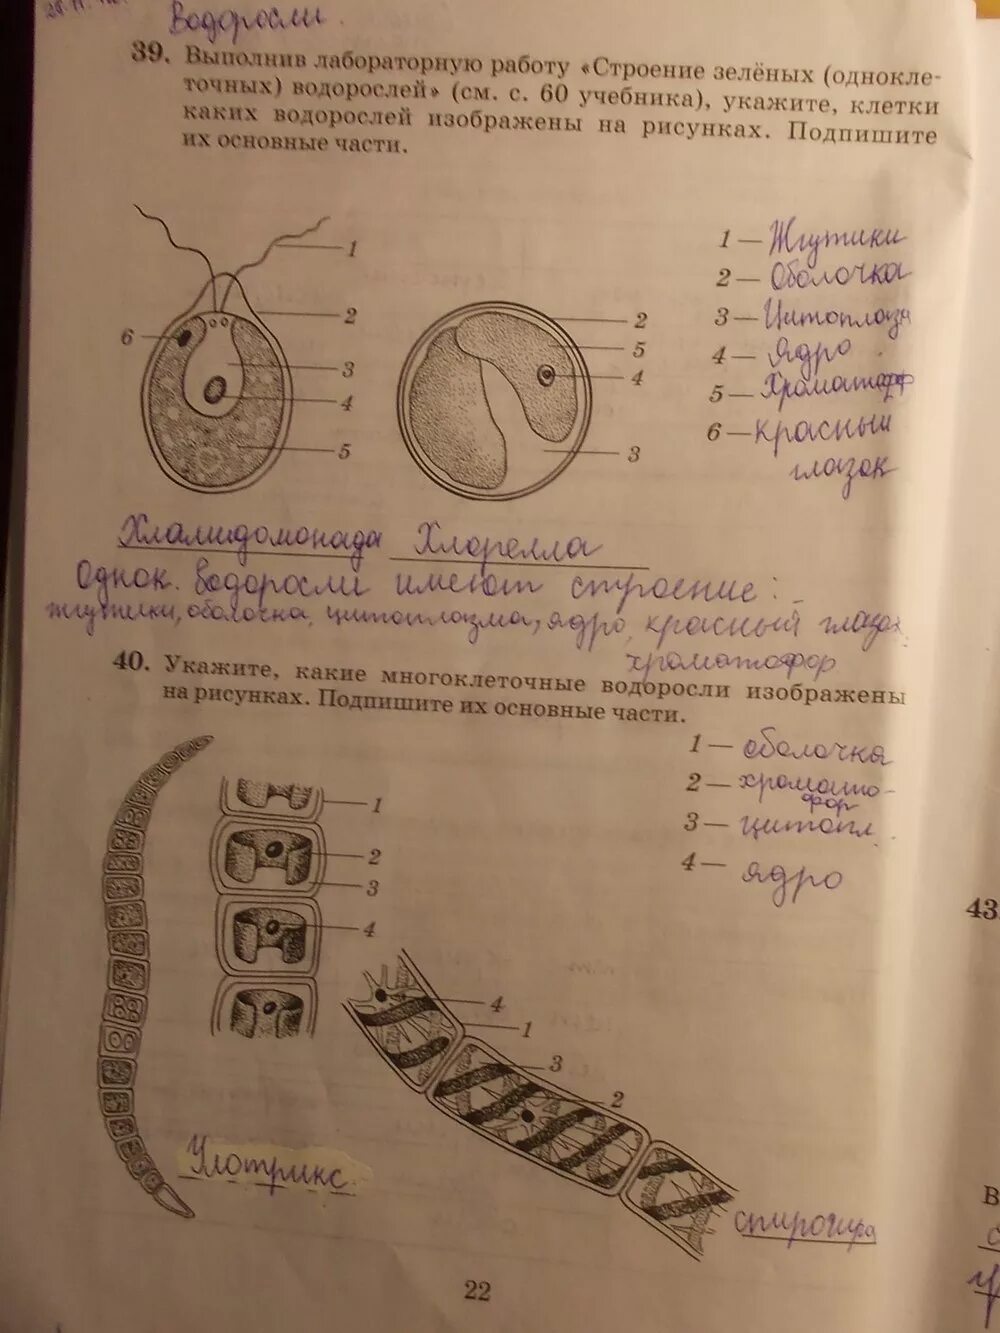 Водоросли.
39. Выполнив лабораторную работу «Строение зелёных (одноклеточных) водорослей» (см. с. 60 учебника), укажите, клетки
каких водорослей изображены на рисунках. Подпишите
их основные части.
1
2
3
4
5
6
2
5
4
3
1 — Жгутики
2 — Оболочка
3 — Цитоплазм
4 — Ядро
5 — Хроматофф
6 — красный
глазок
Хламидомонада Хлорелла
Однок. водоросли имеют строение:
жгутики, оболочка, цитоплазма, ядро, красный глазок
хроматофор
40. Укажите, какие многоклеточные водоросли изображены
на рисунках. Подпишите их основные части.
1 — оболочка
2 — хромато-
фор
3 — цитопл.
4 — ядро
1
2
3
4
4
1
3
2
Улотрикс
спирогира
22
43.
В